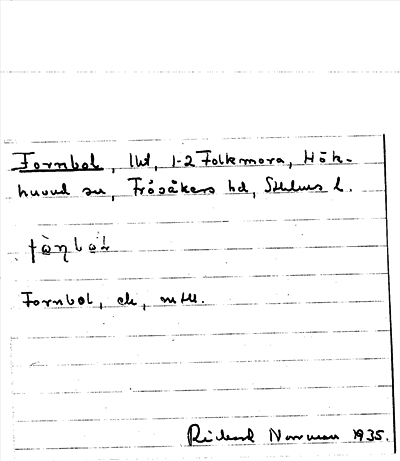 Fornbol, lht, 1-2 Folkmora, Hök-
huvud sn, Frösåkers hd, Sthlms l.
Fornbol, ek, mtl.
Rickard Norrman 1935.